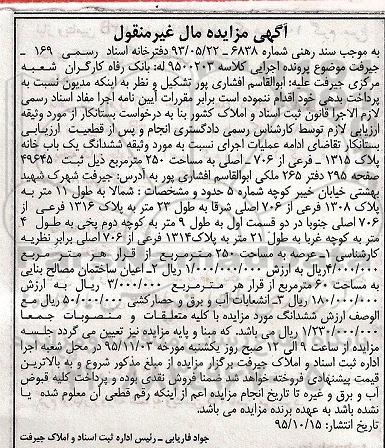 آگهی مزایده مال غیرمنقول
به موجب سند رهنی شماره ۶۸۳۸ - ۹۳/۰۵/۲۲ دفترخانه اسناد رسمی ۱۶۹ -
جیرفت موضوع پرونده اجرایی کلاسه ۹۵۰۰۲۰۳ له: بانک رفاه کارگران شعبه
مرکزی جیرفت علیه: ابوالقاسم افشاری پور تشکیل و نظر به اینکه مدیون نسبت به
پرداخت بدهی خود اقدام ننموده است برابر مقررات آیین نامه اجرا مفاد اسناد رسمی
لازم الاجرا قانون ثبت اسناد و املاک کشور بنا به درخواست بستانکار از مورد وثیقه
ارزیابی لازم توسط کارشناس رسمی دادگستری انجام و پس از قطعیت ارزیابی
بستانکار تقاضای ادامه عملیات اجرای نسبت به مورد وثیقه ششدانگ یک باب خانه
پلاک ۱۳۱۵ - فرعی از ۷۰۶ - اصلی به مساحت ۲۵۰ مترمربع ذیل ثبت ۴۹۶۴۵
صفحه ۲۹۵ دفتر ۲۶۵ ملکی ابوالقاسم افشاری پور به آدرس: جیرفت شهرک شهید
بهشتی خیابان خیبر کوچه شماره ۵ حدود و مشخصات : شمالا به طول ۱۱ متر به
پلاک ۱۳۰۸ فرعی از ۷۰۶ اصلی شرقا به طول ۲۳ متر به پلاک ۱۳۱۶ فرعی از
۷۰۶ اصلی جنوبا در دو قسمت اول به طول ۹ متر به کوچه دوم پخی به طول ۴
متر به کوچه غربا به طول ۲۱ متر به پلاک ۱۳۱۴ فرعی از ۷۰۶ اصلی برابر نظریه
کارشناسی ۱- عرصه به مساحت ۲۵۰ مترمربع از قرار هر متر مربع
۴/۰۰۰/۰۰۰ ریال به ارزش ۱/۰۰۰/۰۰۰/۰۰۰ ریال ۲- اعیان ساختمان مصالح بنایی
به مساحت ۶۰ مترمربع از قرار هر مترمربع ۳/۰۰۰/۰۰۰ ریال به ارزش
۱۸۰/۰۰۰/۰۰۰ ریال ۳- انشعابات آب و برق و حصارکشی ۵۰/۰۰۰/۰۰۰ ریال مع
الوصف ارزش ششدانگ مورد مزایده با کلیه متعلقات و منصوبات جمعا
۱/۲۳۰/۰۰۰/۰۰۰ ریال می باشد. که مبنا و پایه مزایده نیز تعیین می گردد جلسه
مزایده از ساعت ۹ الی ۱۲ صبح روز یکشنبه مورخه ۹۵/۱۱/۰۳ در محل شعبه اجرا
اداره ثبت اسناد و املاک جیرفت برگزار مزایده از مبلغ مذکور شروع و به بالاترین
قیمت پیشنهادی فروخته خواهد شد ضمنا فروش نقدی بوده و پرداخت کلیه قبوض
آب و برق و غیره تا تاریخ انجام مزایده اعم از اینکه رقم قطعی آن معلوم شده یا
نشده باشد به عهده برنده مزایده می باشد.
تاریخ انتشار: ۹۵/۱۰/۱۵
جواد فاریابی - رئیس اداره ثبت اسناد و املاک جیرفت